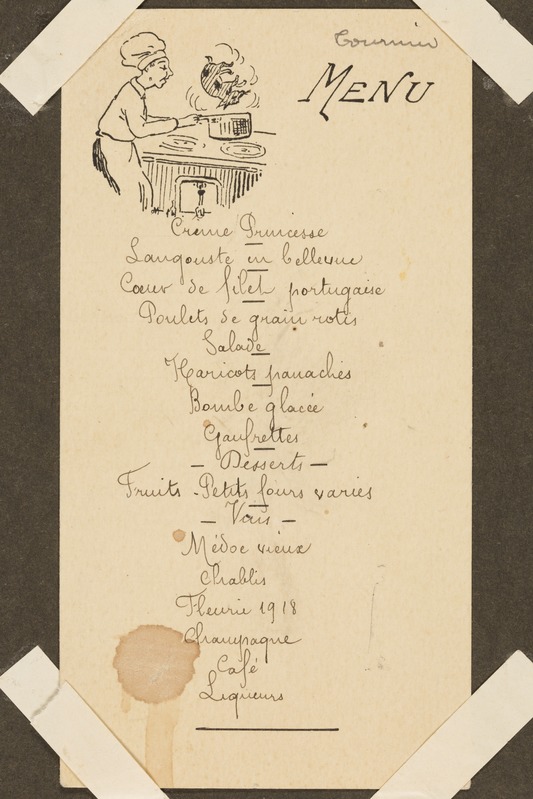 Tournier
MENU
Crème Princesse
Langouste en bellevue
Cœur de filet portugaise
Poulets de grain rotis
Salade
Haricots panachés
Bombe glacée
Gaufrettes
— Desserts —
Fruits - Petits fours variés
— Vins —
Médoc vieux
Chablis
Fleurie 1918
Champagne
Café
Liqueurs